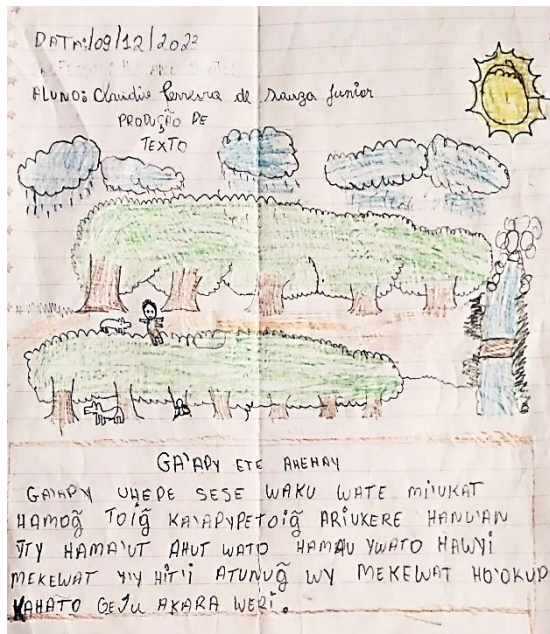 DATA:/09/12/2023
ALUNO: Claudio Ferreira de Sauza Junior
PRODUÇÃO DE
TEXTO
GA'APY ETE AHENAY
GA'APY UHEPE SESE WAKU WATE MI'UKAT
HAMOG̃ TOIG̃ KA'APYPETOIG̃ ARĨUKERE HANU'AN
ỸTY HAMA'UT AHUT WATO HAMAU YWATO HAWYI
MEKEWAT Y'Y HĨT'I ATUNUG̃ WY MEKEWAT HO'OKUP
KAHATO GEJU AKARA WERI.